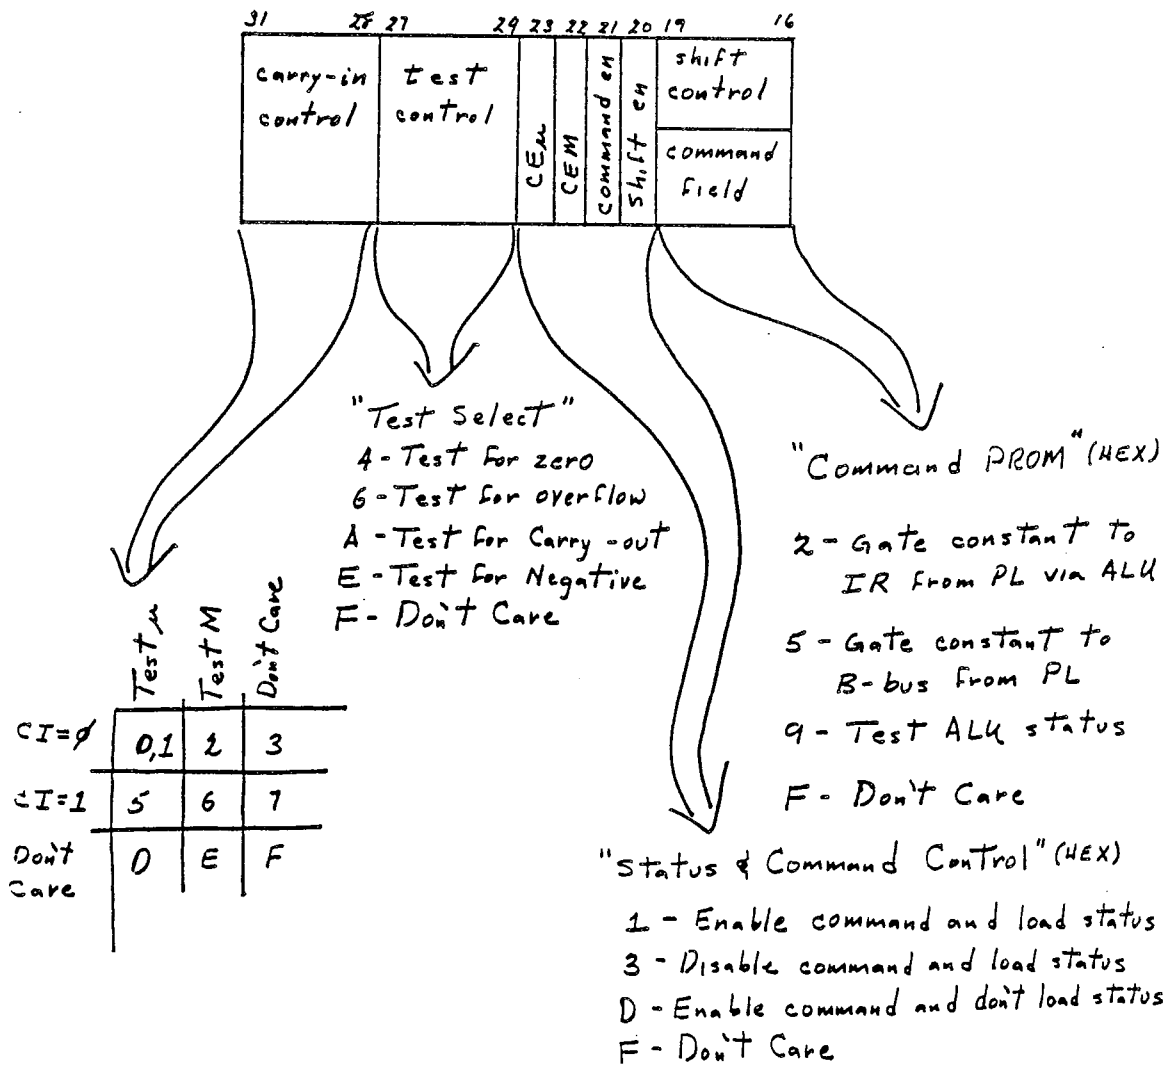 31 28 27 24 23 22 21 20 19 16
carry-in
control
test
control
CEμ
CEM
command en
shift en
shift
control
command
field
"Test Select"
4 - Test for zero
6 - Test for overflow
A - Test for Carry-out
E - Test for Negative
F - Don't Care
"Command PROM" (HEX)
2 - Gate constant to
IR from PL via ALU
5 - Gate constant to
B-bus from PL
9 - Test ALU status
F - Don't Care
Test μ
Test M
Don't Care
CI=0 0,1 2 3
CI=1 5 6 7
Don't
Care
D E F
"Status & Command Control" (HEX)
1 - Enable command and load status
3 - Disable command and load status
D - Enable command and don't load status
F - Don't Care